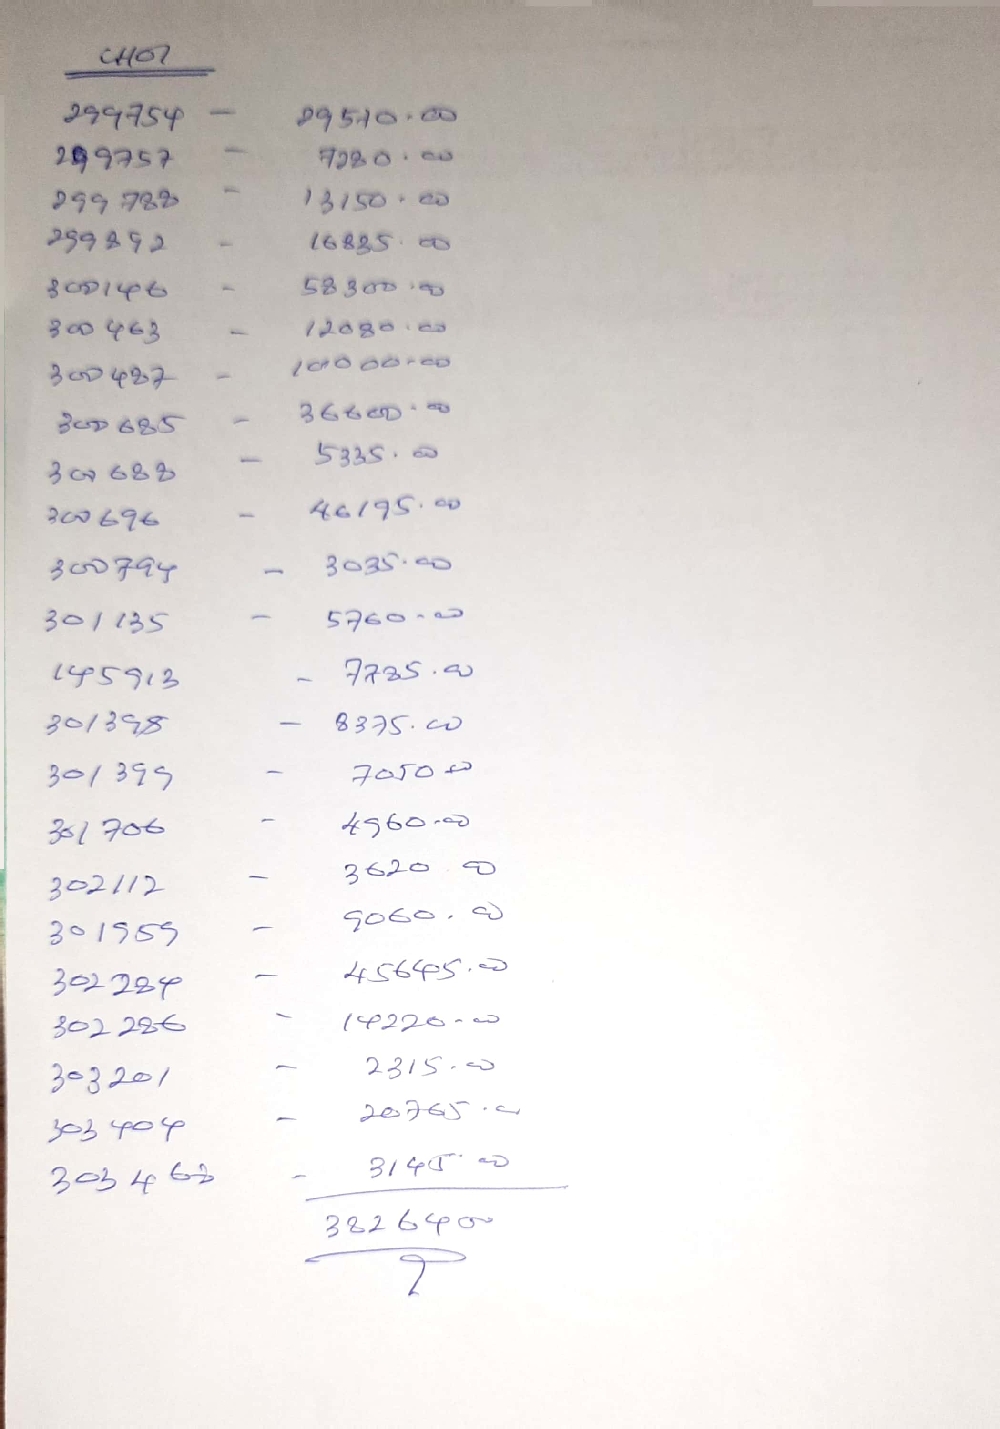 CHOT
299754 - 29510.00
299757 - 7280.00
299788 - 13150.00
299892 - 16835.00
300146 - 58300.00
300463 - 12080.00
300487 - 10000.00
300685 - 36600.00
300688 - 5335.00
300696 - 46195.00
300794 - 3035.00
301135 - 5760.00
145913 - 7785.00
301398 - 8375.00
301399 - 7050.00
301706 - 4960.00
302112 - 3620.00
301959 - 9060.00
302284 - 45645.00
302286 - 14220.00
303201 - 2315.00
303404 - 20765.00
303463 - 3145.00
382640 00